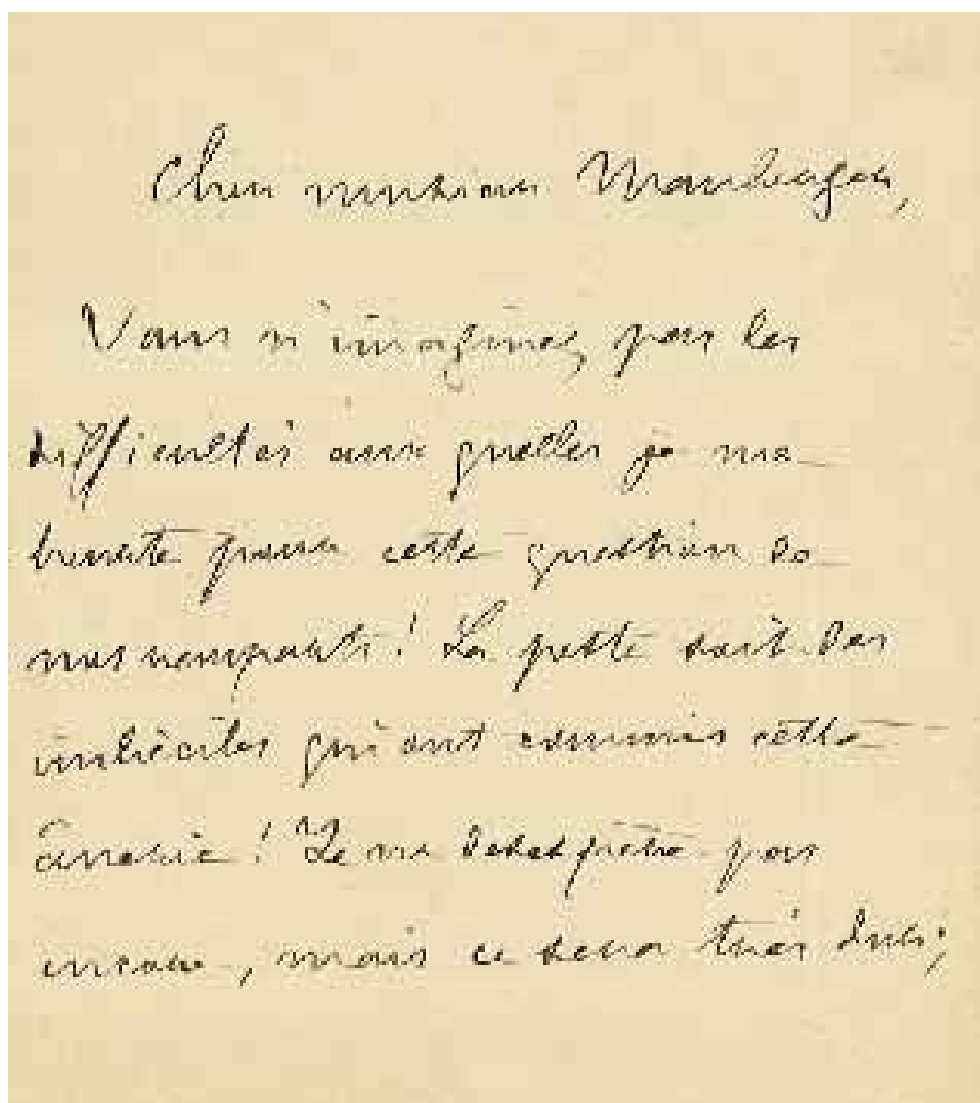 Cher monsieur
Vous n'imaginez pas les
difficultés aux quelles je me
heurte pour cette question de
nos remparts! La peste soit des
imbéciles qui ont commis cette
ânerie! Je ne désespère pas
encore, mais ce sera très dur;